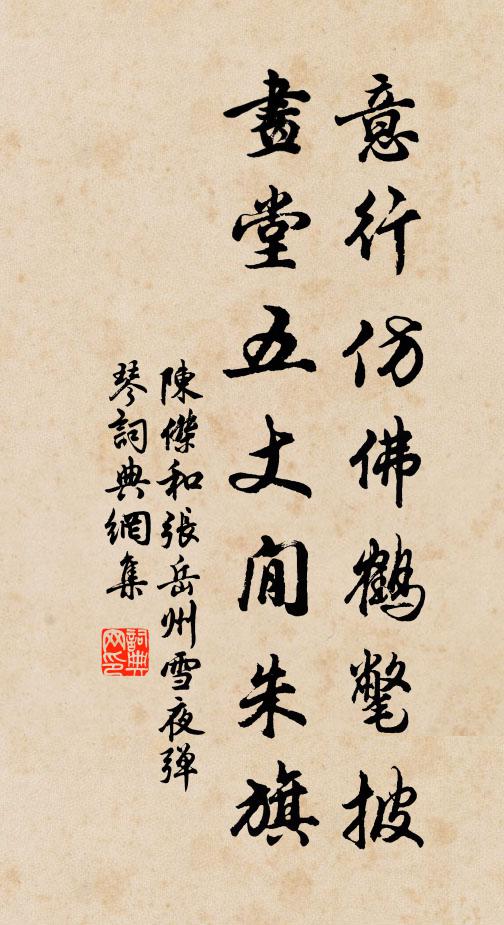 意行仿佛鶴氅披
畫堂五丈閒朱旗
陳傑和張岳州雪夜弹
琴詞典網集
詞典
网印